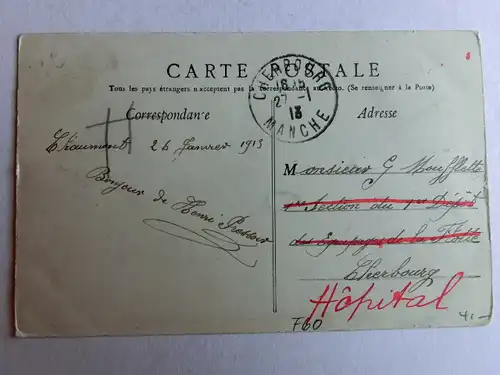 CARTE POSTALE
Tous les pays étrangers n'acceptent pas la correspondance au recto. (Se renseigner à la Poste)
CHERBOURG
16 15
27 - 1
13
MANCHE
Correspondance
Adresse
Chaumont 26 Janvier 1913
Bonjour de Henri
Monsieur G Moufflotte
1re Section du 1er Dépôt
des Equipages de la Flotte
Cherbourg
Hôpital
F60